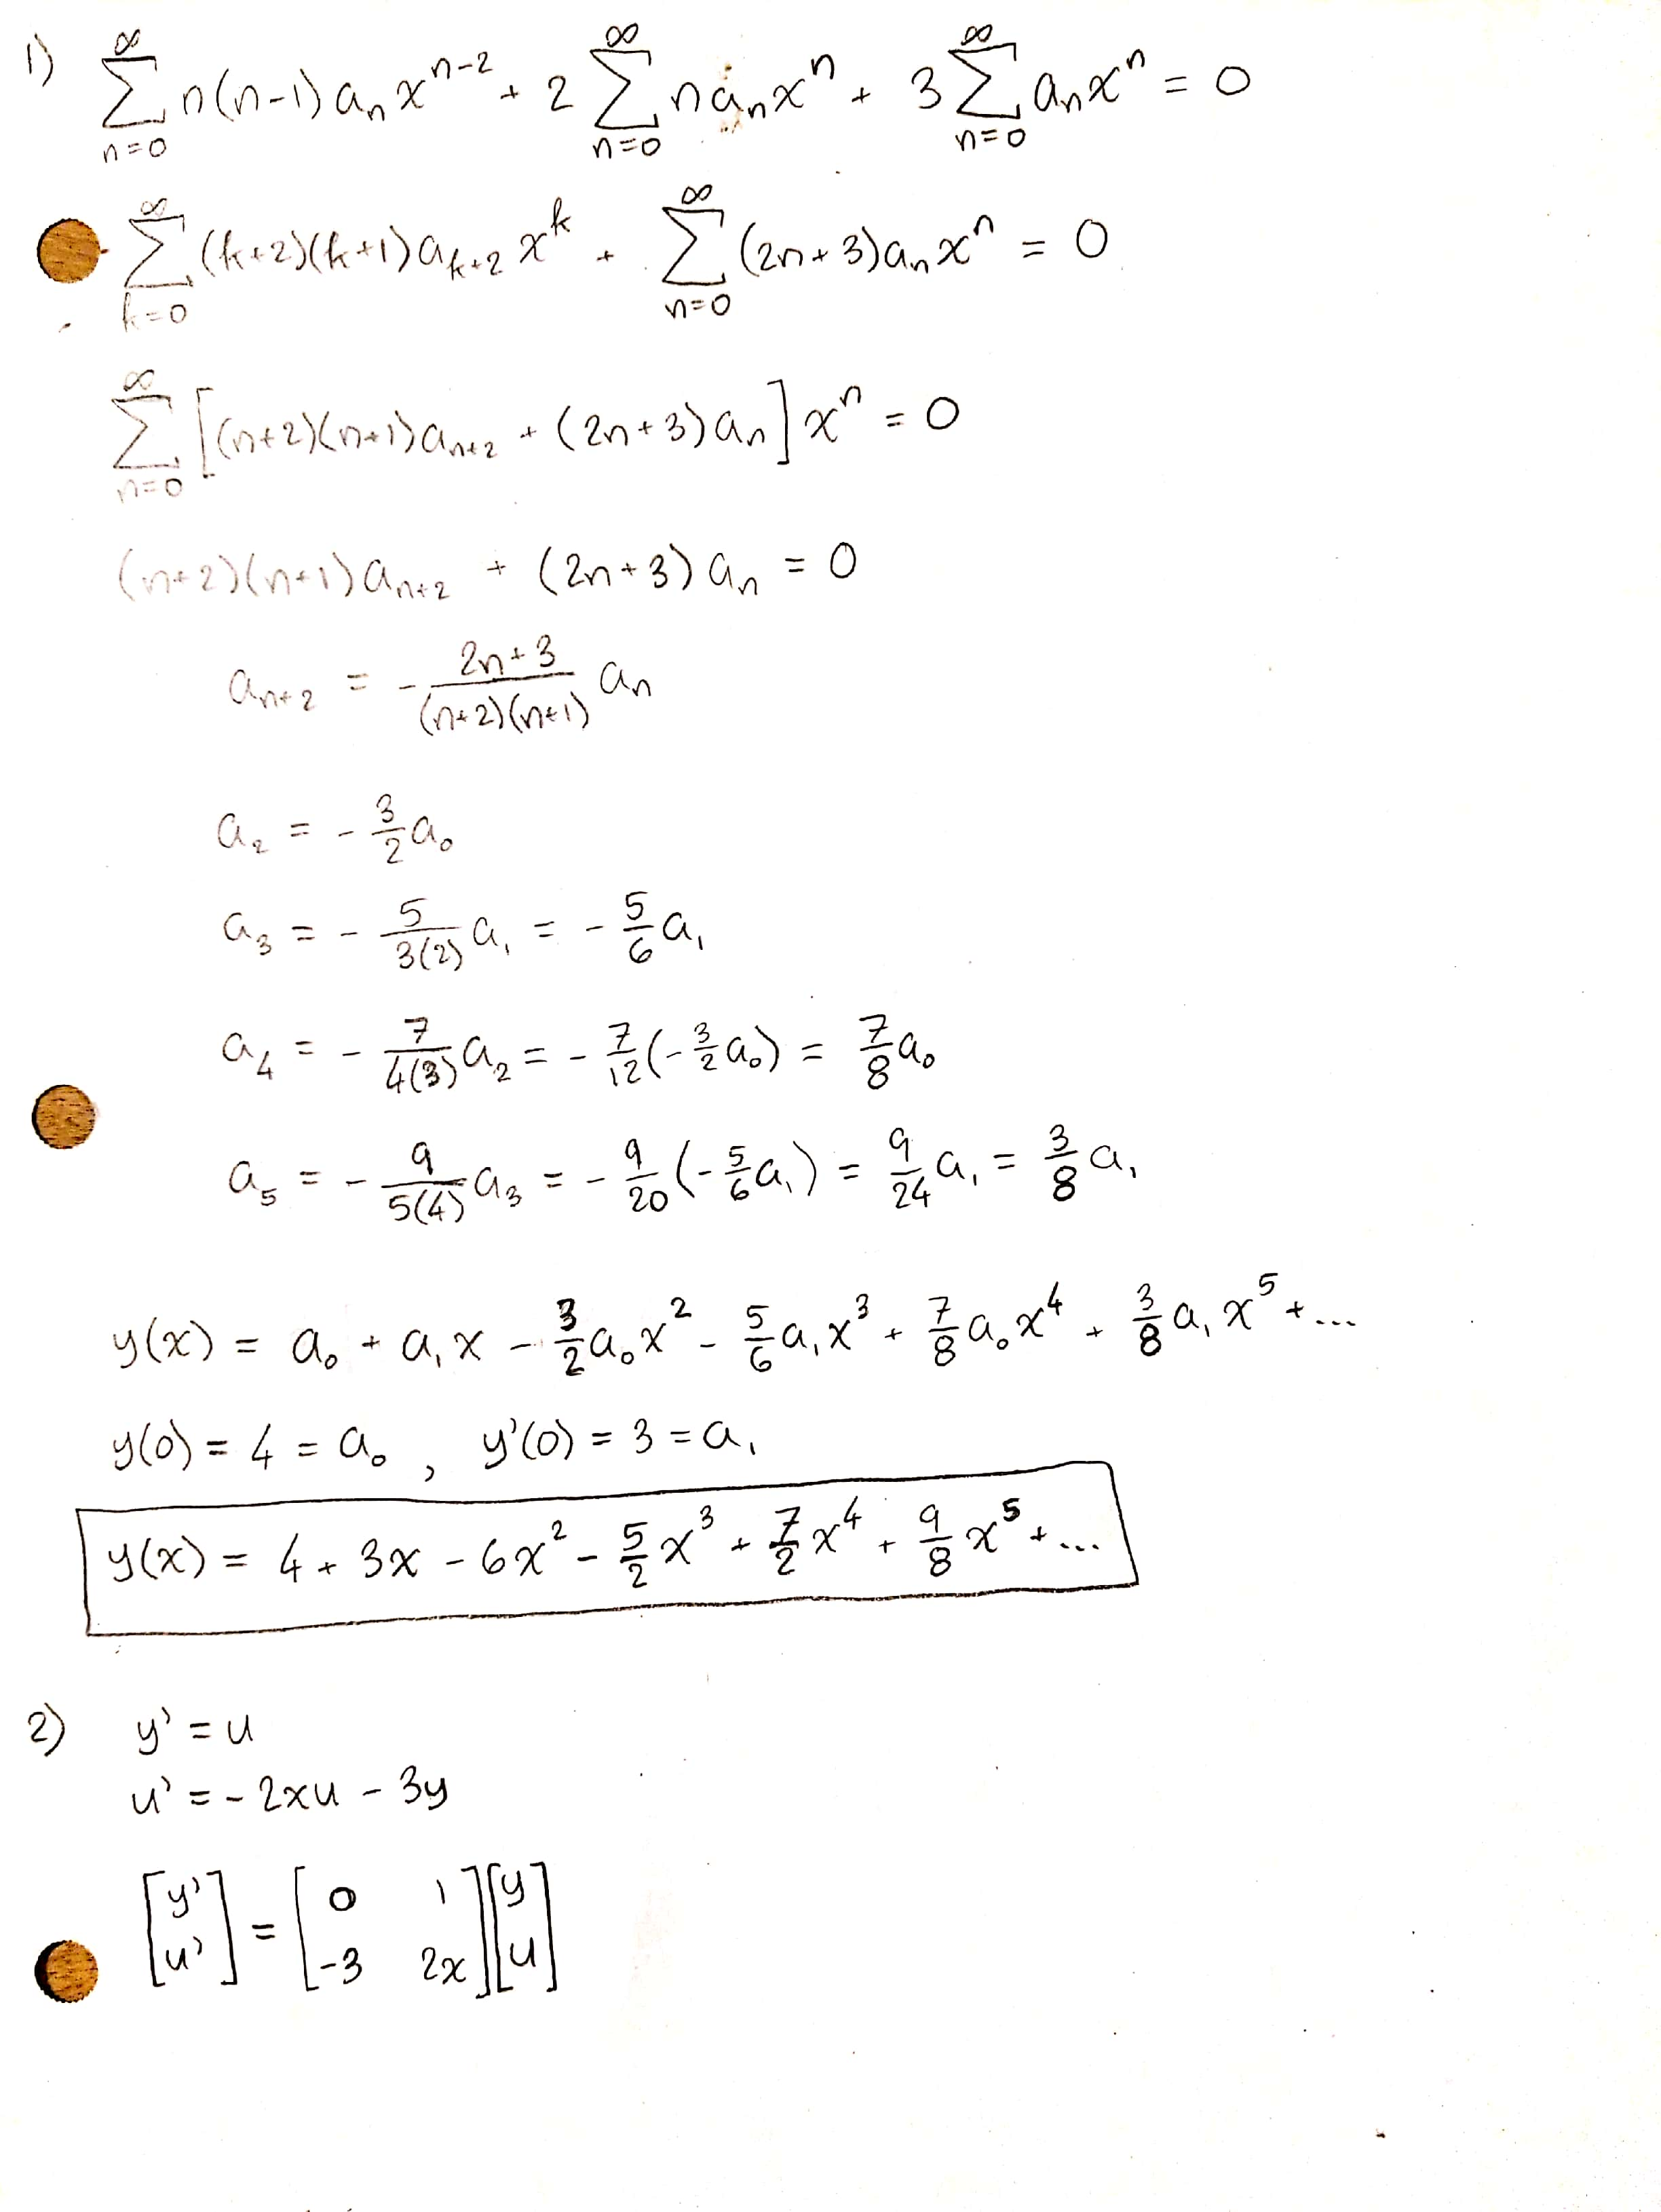 1) ∑_{n=0}^{∞} n(n-1) a_n x^{n-2} + 2 ∑_{n=0}^{∞} n a_n x^n + 3 ∑_{n=0}^{∞} a_n x^n = 0
∑_{k=0}^{∞} (k+2)(k+1) a_{k+2} x^k + ∑_{n=0}^{∞} (2n+3) a_n x^n = 0
∑_{n=0}^{∞} [(n+2)(n+1) a_{n+2} + (2n+3) a_n] x^n = 0
(n+2)(n+1) a_{n+2} + (2n+3) a_n = 0
a_{n+2} = - \frac{2n+3}{(n+2)(n+1)} a_n
a_2 = - \frac{3}{2} a_0
a_3 = - \frac{5}{3(2)} a_1 = - \frac{5}{6} a_1
a_4 = - \frac{7}{4(3)} a_2 = - \frac{7}{12} (- \frac{3}{2} a_0) = \frac{7}{8} a_0
a_5 = - \frac{9}{5(4)} a_3 = - \frac{9}{20} (- \frac{5}{6} a_1) = \frac{9}{24} a_1 = \frac{3}{8} a_1
y(x) = a_0 + a_1 x - \frac{3}{2} a_0 x^2 - \frac{5}{6} a_1 x^3 + \frac{7}{8} a_0 x^4 + \frac{3}{8} a_1 x^5 + ...
y(0) = 4 = a_0 , y'(0) = 3 = a_1
y(x) = 4 + 3x - 6x^2 - \frac{5}{2} x^3 + \frac{7}{2} x^4 + \frac{9}{8} x^5 + ...
2) y' = u
u' = - 2xu - 3y
[y' ; u'] = [0 1 ; -3 2x] [y ; u]